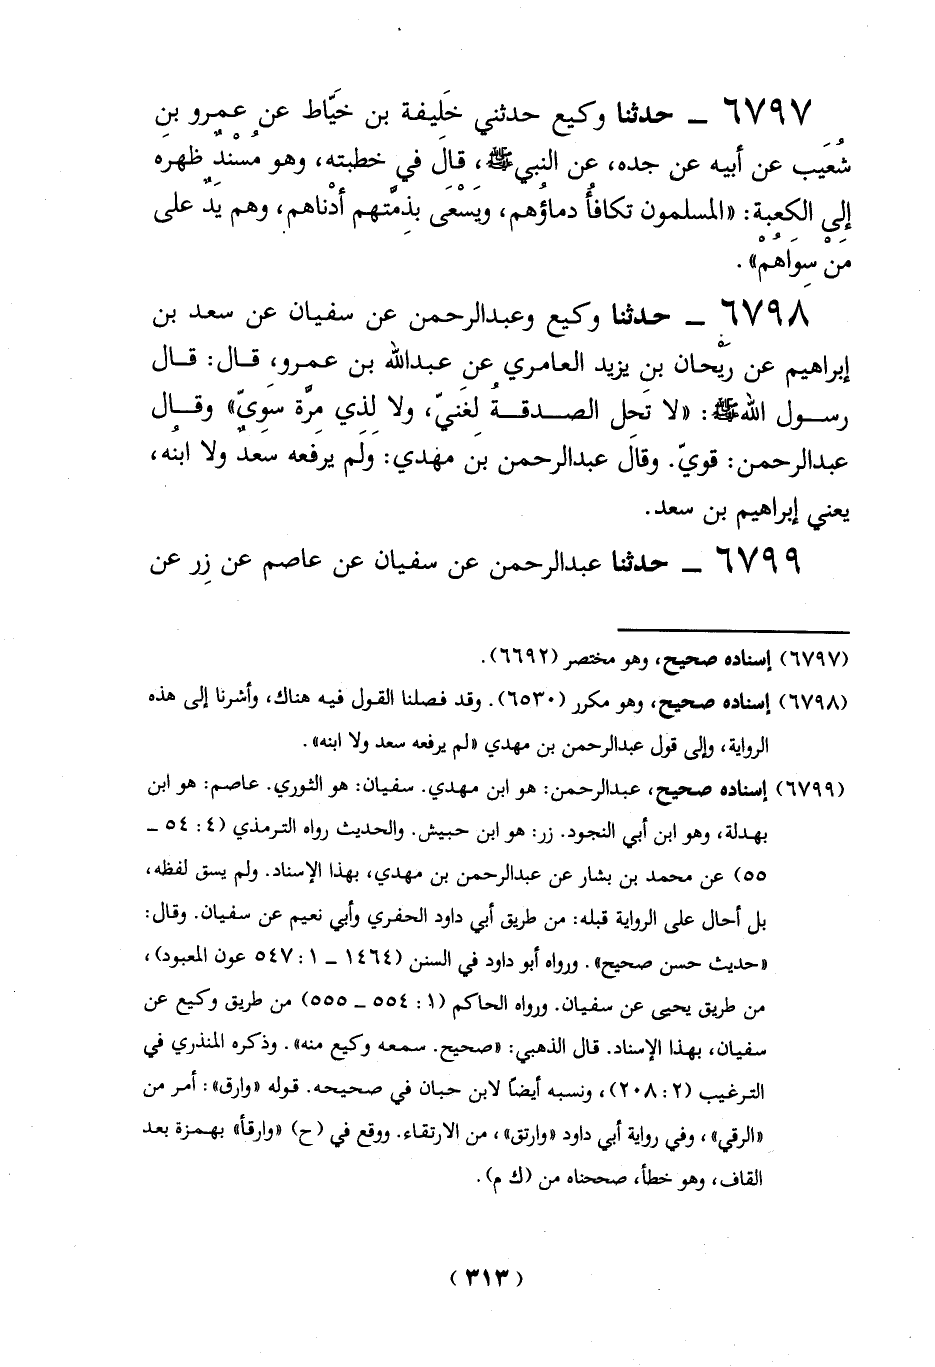 ٦٧٩٧ ــ حدثنا وكيع حدثني خَليفة بن خيَّاط عن عمْرو بن
شُعَيب عن أبيه عن جده، عن النبي ﷺ، قال في خطبته، وهو مُسْنِدٌ ظهره
إلى الكعبة: «المسلمون تكافأُ دماؤُهم، ويَسْعَى بذِمَّتهم أدْناهم، وهم يَدٌ على
مَنْ سِوَاهُمْ».
٦٧٩٨ ــ حدثنا وكيع وعبدالرحمن عن سفيان عن سعد بن
إبراهيم عن رَيْحان بن يزيد العامري عن عبدالله بن عمرو، قال: قال
رسول الله ﷺ: «لا تَحل الصدقةُ لِغَنيّ، ولا لِذِي مِرَّة سَوِيّ» وقال
عبدالرحمن: قويّ. وقال عبدالرحمن بن مهدي: ولم يرفعه سعدٌ ولا ابنُه،
يعني إبراهيم بن سعد.
٦٧٩٩ ــ حدثنا عبدالرحمن عن سفيان عن عاصم عن زِر عن
(٦٧٩٧) إسناده صحيح، وهو مختصر (٦٦٩٢).
(٦٧٩٨) إسناده صحيح، وهو مكرر (٦٥٣٠). وقد فصلنا القول فيه هناك، وأشرنا إلى هذه
الرواية، وإلى قول عبدالرحمن بن مهدي «لم يرفعه سعد ولا ابنه».
(٦٧٩٩) إسناده صحيح، عبدالرحمن: هو ابن مهدي. سفيان: هو الثوري. عاصم: هو ابن
بهدلة، وهو ابن أبي النجود. زر: هو ابن حبيش. والحديث رواه الترمذي (٤: ٥٤ ــ
٥٥) عن محمد بن بشار عن عبدالرحمن بن مهدي، بهذا الإسناد. ولم يسق لفظه،
بل أحال على الرواية قبله: من طريق أبي داود الحفري وأبي نعيم عن سفيان. وقال:
«حديث حسن صحيح». ورواه أبو داود في السنن (١٤٦٤ ــ ١: ٥٤٧ عون المعبود)،
من طريق يحيى عن سفيان. ورواه الحاكم (١: ٥٥٤ ــ ٥٥٥) من طريق وكيع عن
سفيان، بهذا الإسناد. قال الذهبي: «صحيح. سمعه وكيع منه». وذكره المنذري في
الترغيب (٢: ٢٠٨)، ونسبه أيضاً لابن حبان في صحيحه. قوله «وارق»: أمر من
«الرقي»، وفي رواية أبي داود «وارتق»، من الارتقاء. ووقع في (ح) «وارقأ» بهمزة بعد
القاف، وهو خطأ، صححناه من (ك م).
(٣١٣)